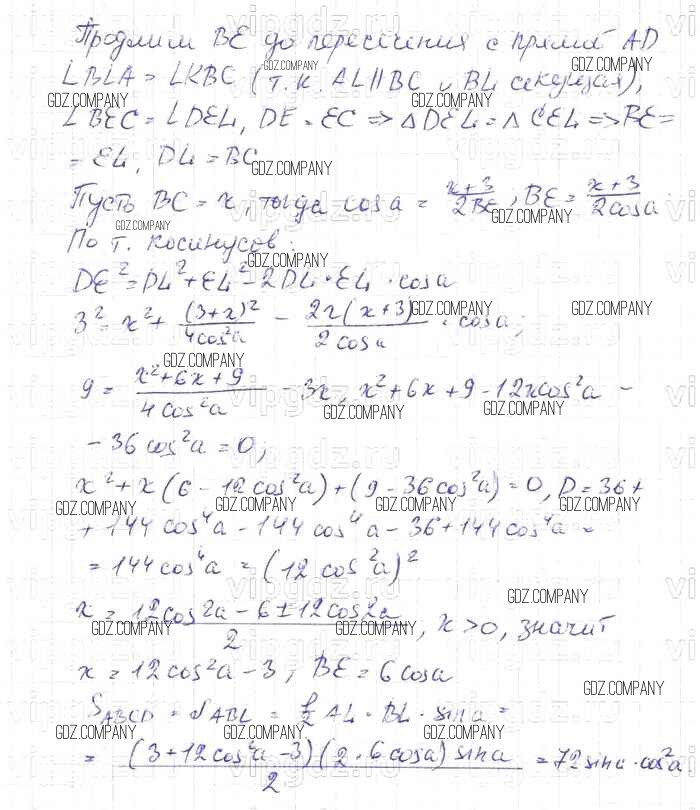 Продлим BE до пересечения с прямой AD
∠BLA = ∠KBC (т.к. AL∥BC и BL секущая),
∠BEC = ∠DEL, DE = EC => △DEL = △CEL => BE =
= EL, DL = BC
Пусть BC = x, тогда cos a = (x+3)/(2BE); BE = (x+3)/(2cosa)
По т. косинусов:
DE² = DL² + EL² - 2DL · EL · cosa
3² = x² + (3+x)²/(4cos²a) - 2x(x+3)/(2cosa) · cosa;
9 = (x²+6x+9)/(4cos²a) - 3x, x²+6x+9-12xcos²a -
- 36cos²a = 0;
x² + x(6 - 12cos²a) + (9 - 36cos²a) = 0, D = 36 +
+ 144cos⁴a - 144cos⁴a - 36 + 144cos⁴a =
= 144cos⁴a = (12cos²a)²
x = (12cos²a - 6 ± 12cos²a)/2, x > 0, значит
x = 12cos²a - 3; BE = 6cosa
S ABCD = S ABL = 1/2 AL · BL · sina =
= (3+12cos²a-3)(2·6cosa)sina/2 = 72sina·cos²a
GDZ.COMPANY
vipgdz.ru